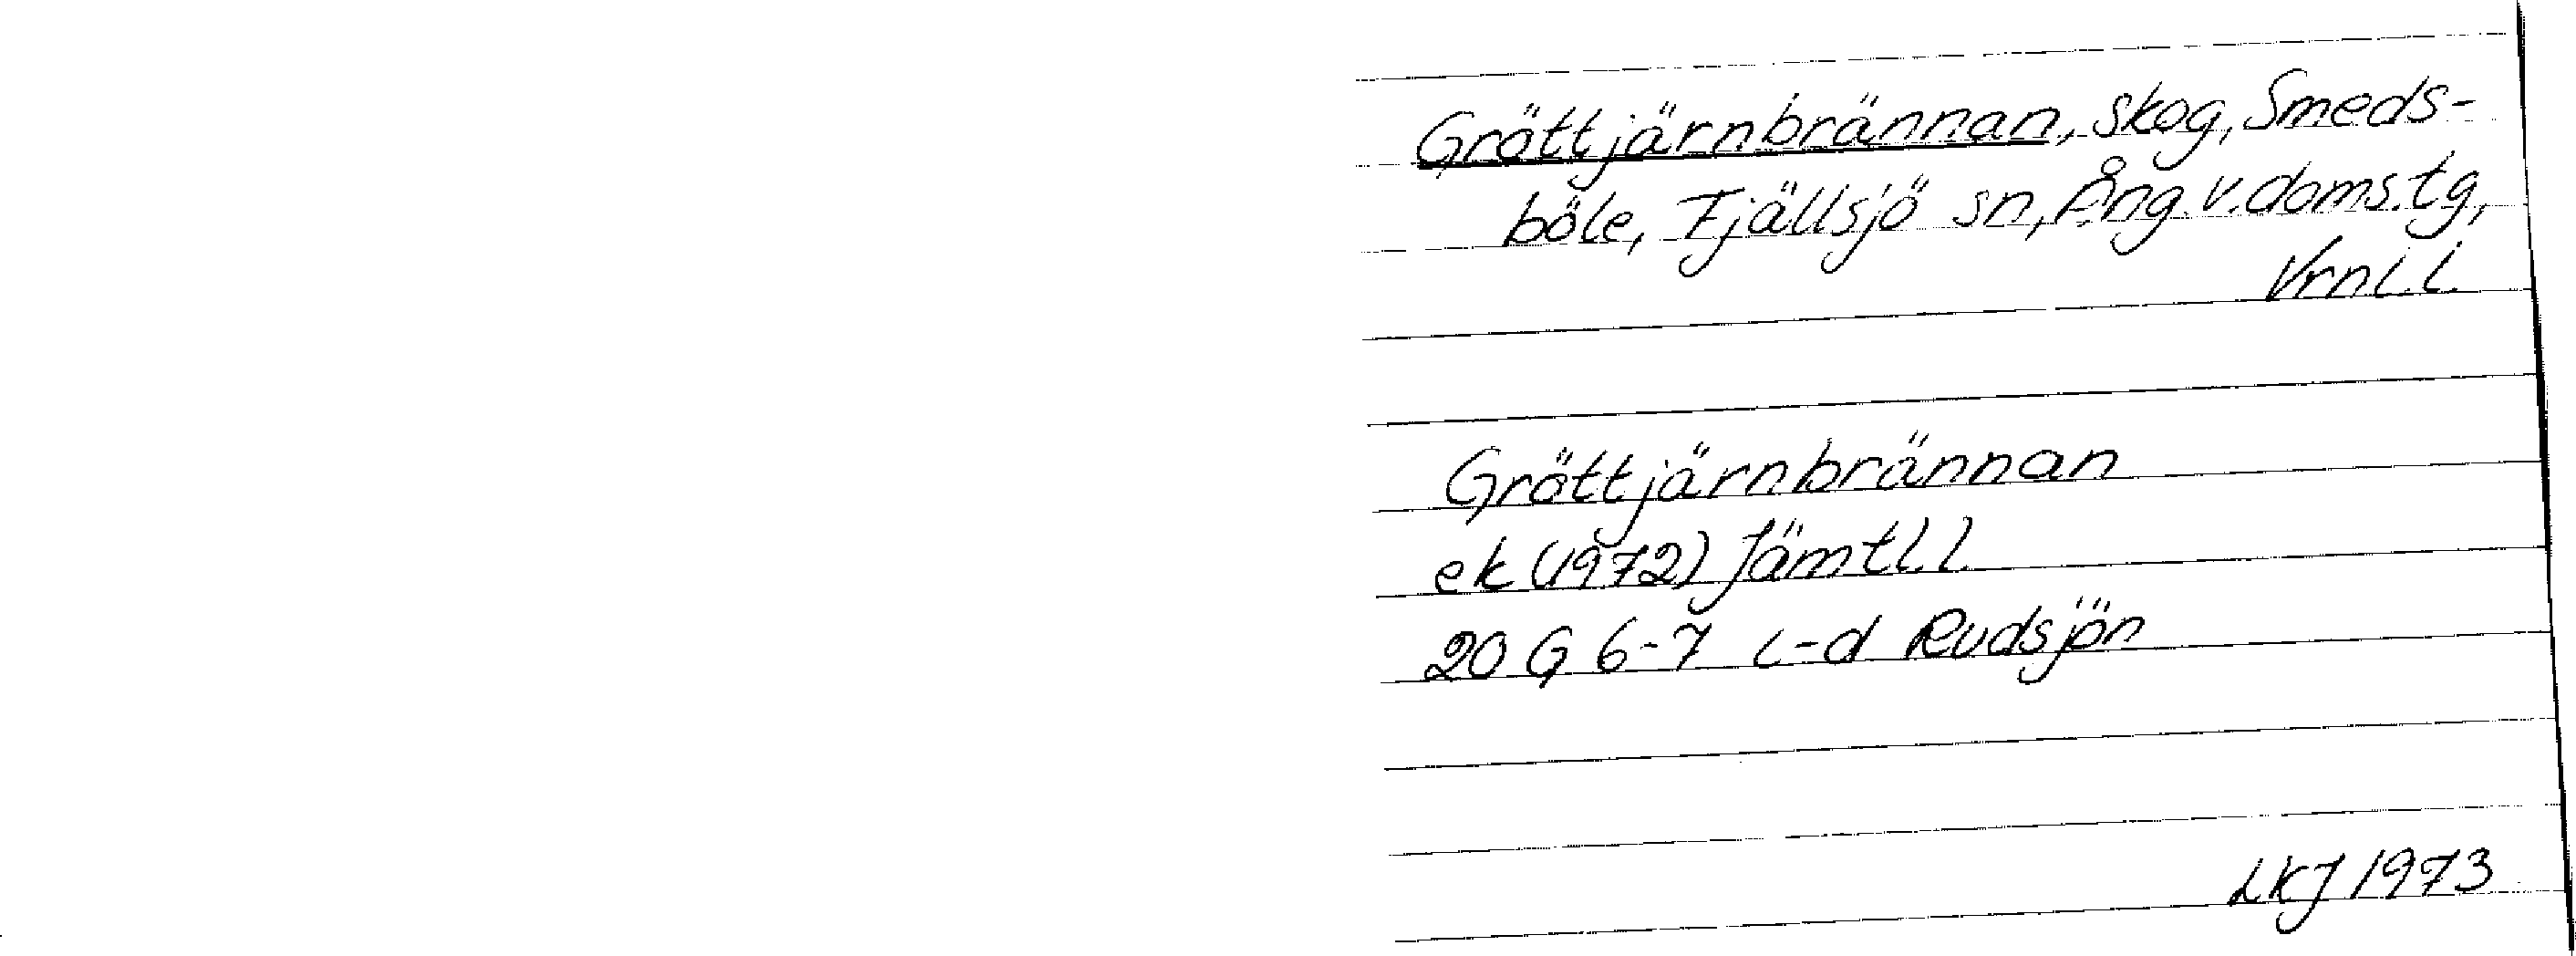 Gröttjärnbrännan, skog, Smeds-
böle, Fjällsjö sn, Ång. v. doms. tg,
Vrnl. l.
Gröttjärnbrännan
ek (1972) Jämtl. l.
20 G 6-7 c-d Rudsjön
LKJ 1973